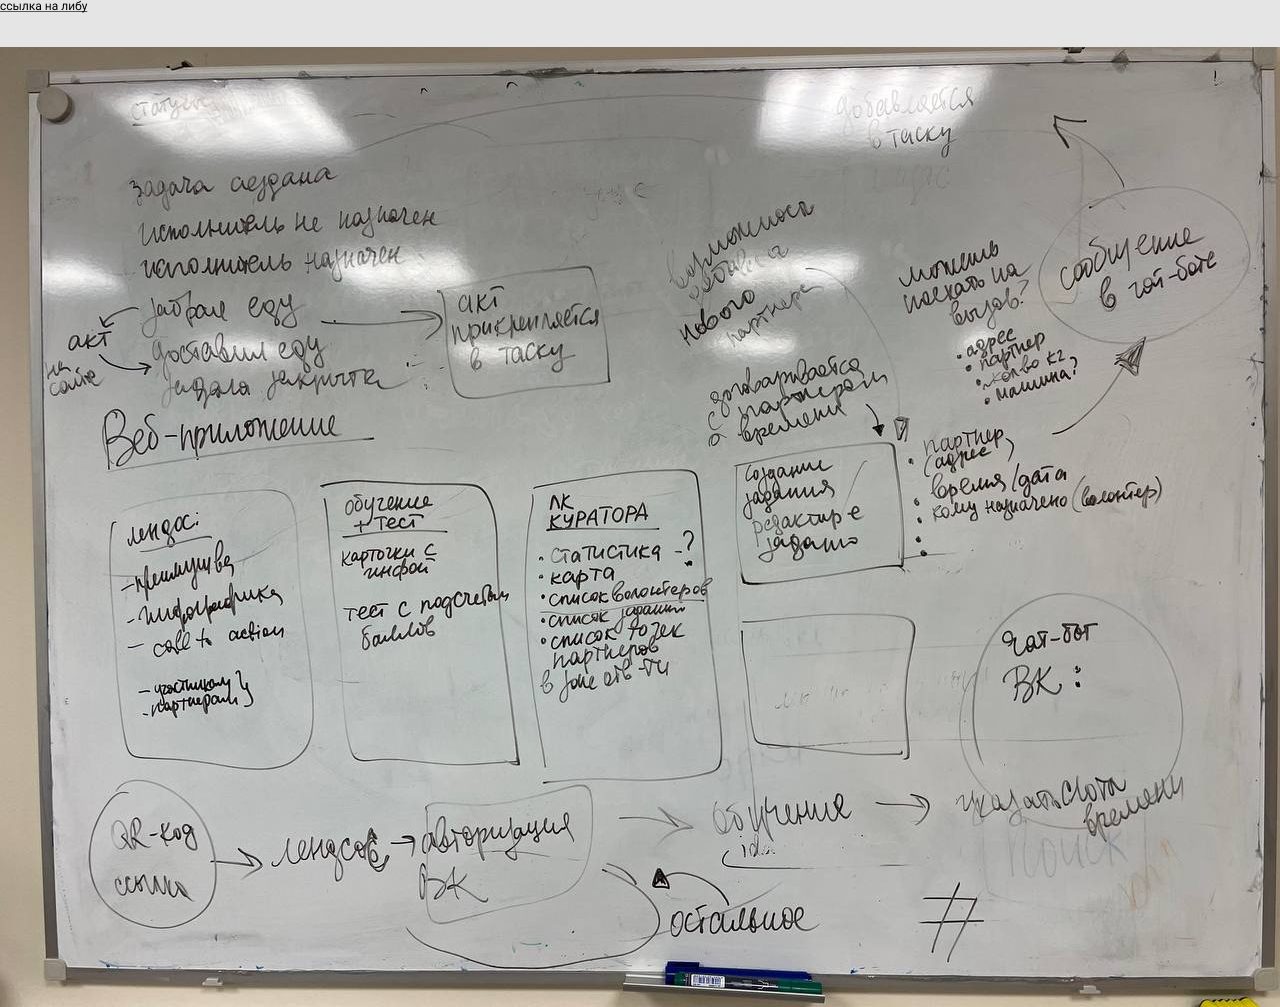 ссылка на либу
статусы
добавляется
в таску
задача создана
исполнитель не назначен
исполнитель назначен
забрал еду
акт
на сайте
доставил еду
задача закрыта
акт
прикрепляется
в таску
возможность
добавить
нового
партнера
договаривается
с партнерами
о времени
можешь
поехать на
вызов?
• адрес
• партнер
• кол-во кг
• машина?
сообщение
в чат-боте
Веб-приложение
лендос:
- преимущва
- инфографика
- call to action
- участникам
- партнерам
обучение
+ тест
карточки с
инфой
тест с подсчетом
баллов
ЛК
КУРАТОРА
• статистика -?
• карта
• список волонтеров
• список заданий
• список точек
партнеров
в зоне отв-ти
создание
задания
редактир е
задания
• партнер
(адрес)
• время/дата
• кому назначено (волонтер)
•
чат-бот
ВК :
QR-код
ссылка
лендос
авторизация
ВК
обучение
указать слоты
времени
поиск
остальное
#